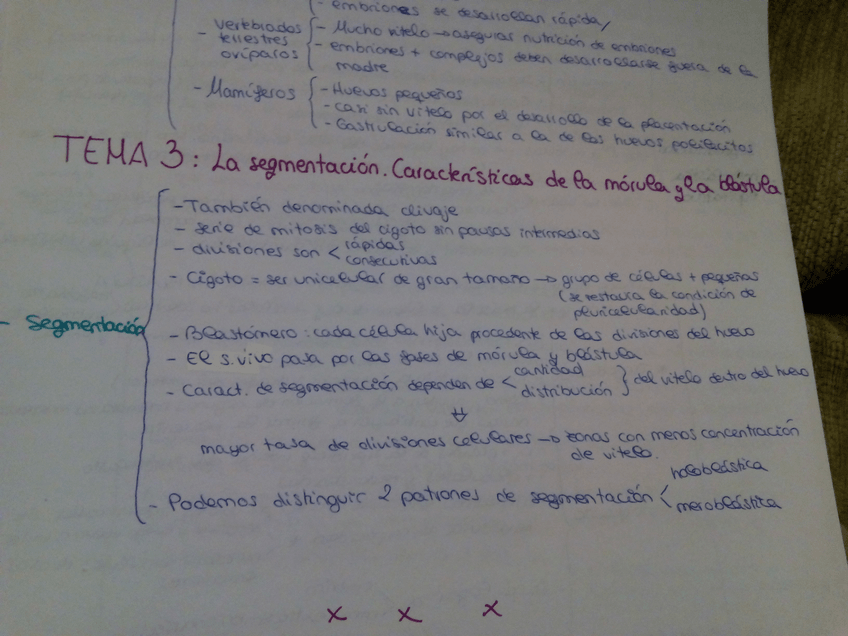 - embriones se desarrollan rápida/
- vertebrados terrestres ovíparos
- Mucho vitelo → asegurar nutrición de embriones
- embriones + complejos deben desarrollarse fuera de la
madre
- Mamíferos
- Huevos pequeños
- casi sin vitelo por el desarrollo de la placentación
- Gastrulación similar a la de los huevos polilecitos
TEMA 3: La segmentación. Características de la mórula y la blástula
- Segmentación
- También denominada clivaje
- serie de mitosis del cigoto sin pausas intermedias
- divisiones son < rápidas
consecutivas
- Cigoto = ser unicelular de gran tamaño → grupo de células + pequeñas
(se restaura la condición de
pluricelularidad)
- Blastómero: cada célula hija procedente de las divisiones del huevo
- El s. vivo pasa por las fases de mórula y blástula
- Caract. de segmentación dependen de < cantidad
distribución } del vitelo dentro del huevo
⇓
mayor tasa de divisiones celulares → zonas con menos concentración
de vitelo.
- Podemos distinguir 2 patrones de segmentación < holoblástica
meroblástica
x x x